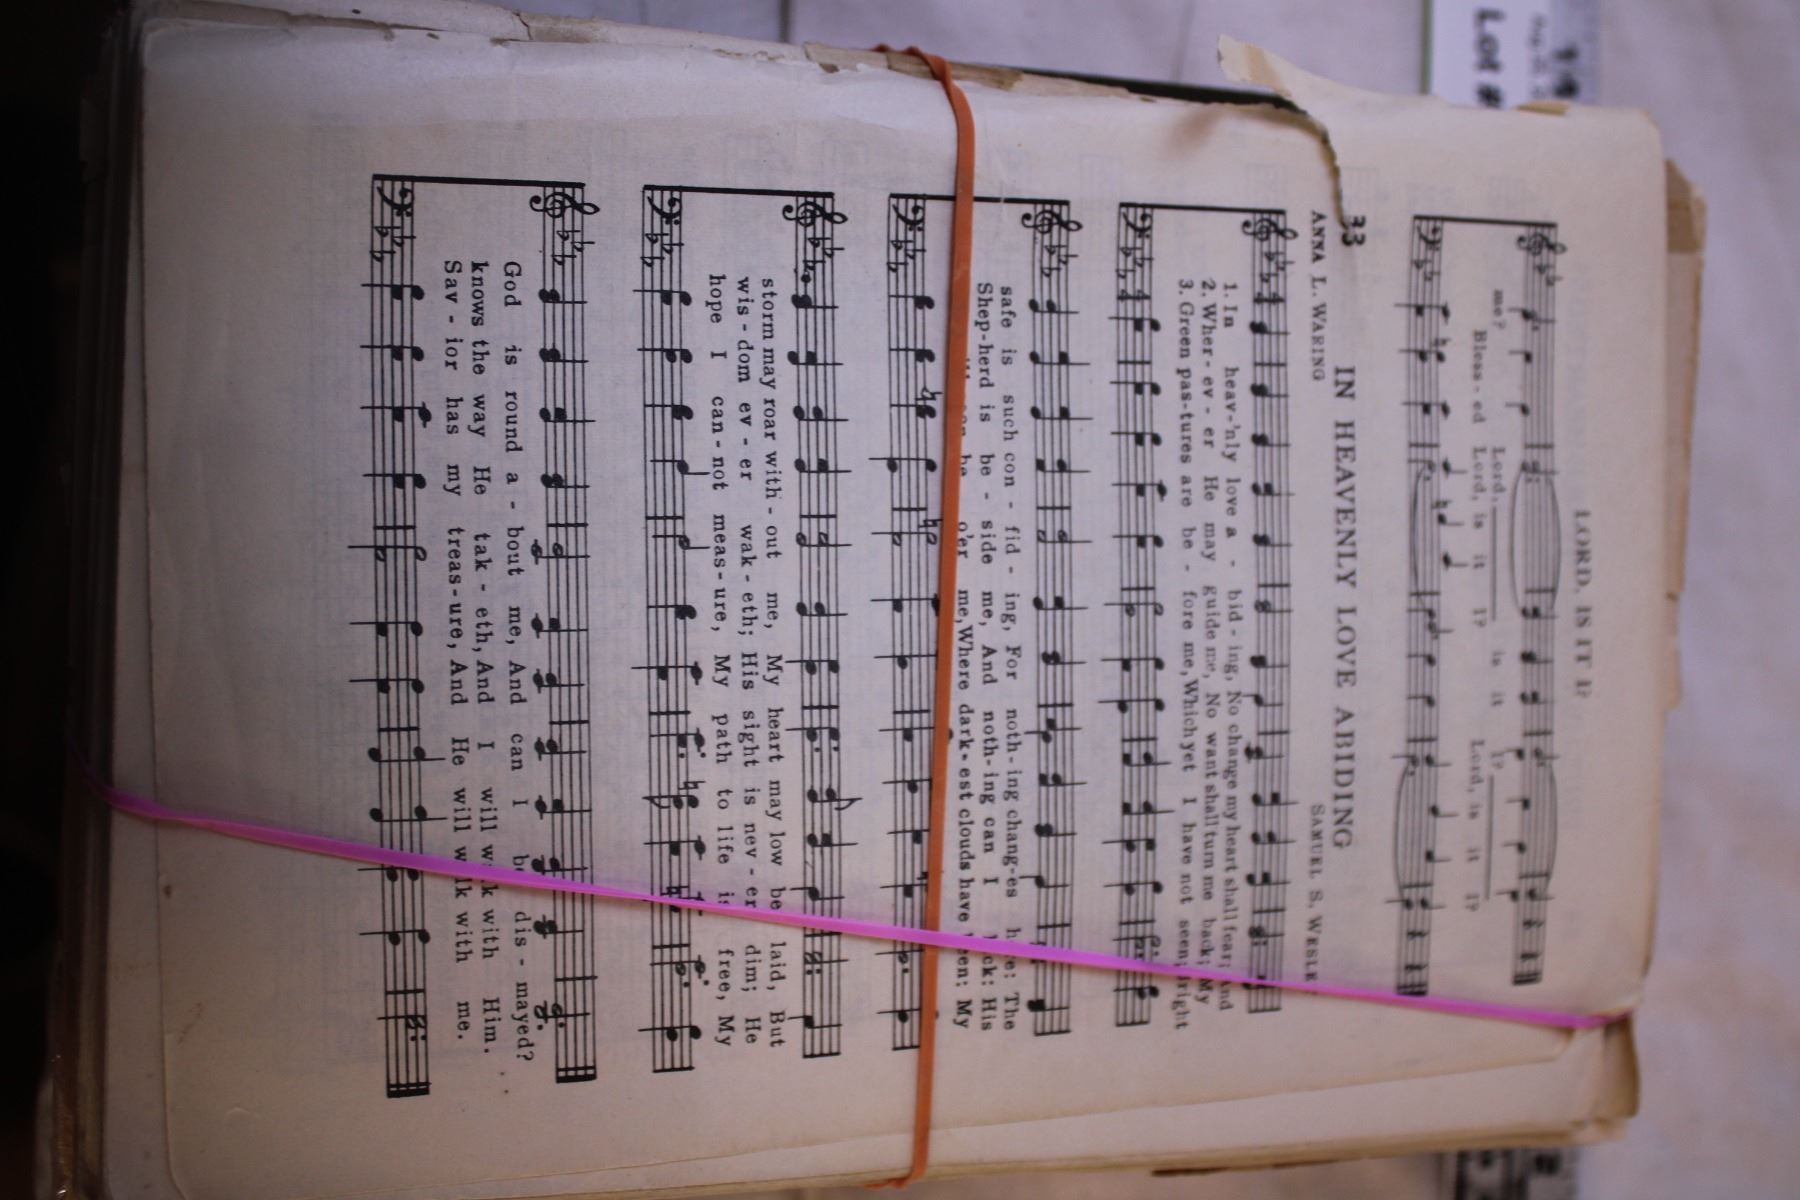 LORD, IS IT I?
Lord, is it I?
me? Bless-ed Lord, is it I? Lord, is it I?
33 IN HEAVENLY LOVE ABIDING
ANNA L. WARING SAMUEL S. WESLE
1. In heav-'nly love a - bid - ing, No change my heart shall fear; And
2. Wher - ev - er He may guide me, No want shall turn me back; My
3. Green pas-tures are be - fore me, Which yet I have not seen; right
safe is such con - fid - ing, For noth-ing chang-es h e: The
Shep-herd is be - side me, And noth-ing can I ck: His
o'er me, Where dark-est clouds have een: My
storm may roar with-out me, My heart may low be laid, But
wis-dom ev - er wak-eth; His sight is nev - er dim; He
hope I can-not meas-ure, My path to life is free, My
God is round a - bout me, And can I be dis - mayed?
knows the way He tak - eth, And I will w k with Him.
Sav - ior has my treas-ure, And He will w lk with me.
Lot #